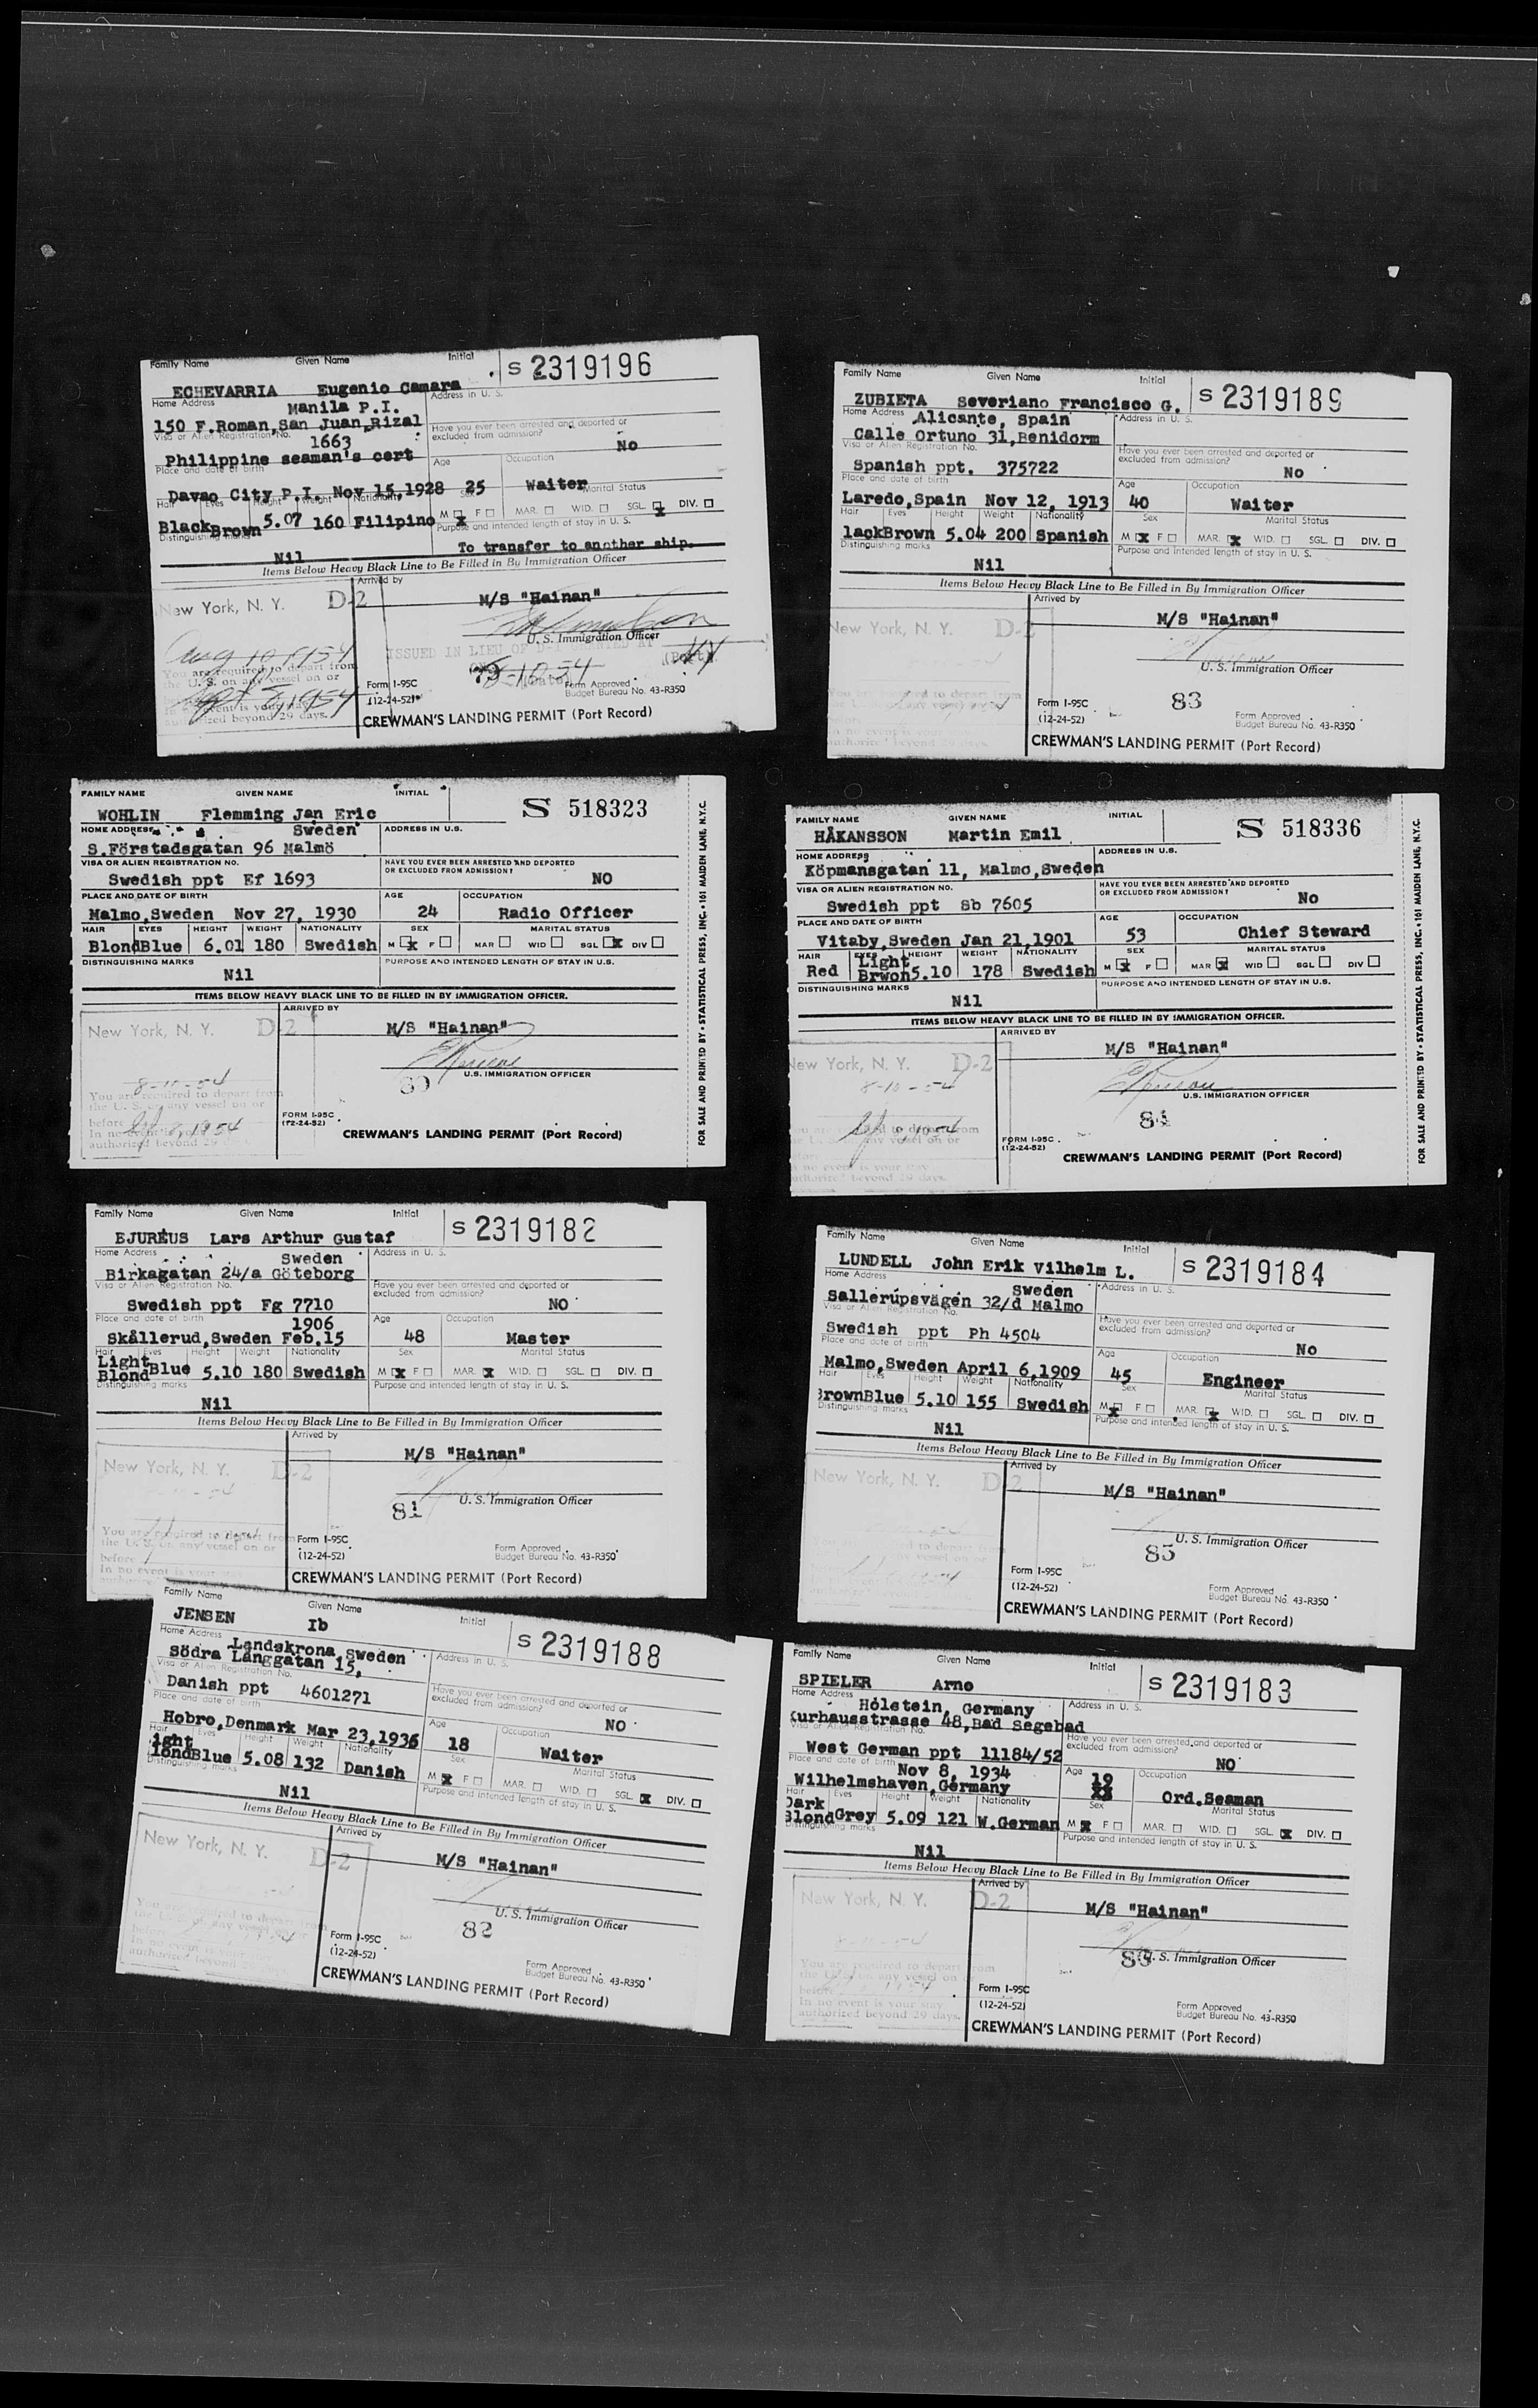 Family Name Given Name Initial
S 2319196
ECHEVARRIA Eugenio Camara
Home Address Address in U. S.
Manila P.I.
150 F.Roman,San Juan,Rizal
Visa or Alien Registration No. Have you ever been arrested and deported or excluded from admission?
1663 No
Philippine seaman's cert
Place and date of birth Age Occupation
Davao City P.I. Nov 15,1928 25 Waiter
Hair Eyes Height Weight Nationality Sex Marital Status
Black Brown 5.07 160 Filipino M X F MAR. WID. SGL. X DIV.
Distinguishing marks Purpose and intended length of stay in U. S.
Nil To transfer to another ship.
Items Below Heavy Black Line to Be Filled in By Immigration Officer
Arrived by
New York, N. Y. D-2 M/S "Hainan"
U. S. Immigration Officer
Aug 10 1954 ISSUED IN LIEU OF D-1 GRANTED AT NY (Port)
You are required to depart from
the U. S. on any vessel on or
8-10-54
In no event is your stay
authorized beyond 29 days.
Form I-95C Form Approved
(12-24-52) Budget Bureau No. 43-R350
CREWMAN'S LANDING PERMIT (Port Record)
Family Name Given Name Initial
S 2319189
ZUBIETA Severiano Francisco G.
Home Address Address in U. S.
Alicante, Spain
Calle Ortuno 31,Benidorm
Visa or Alien Registration No. Have you ever been arrested and deported or excluded from admission?
Spanish ppt. 375722 No
Place and date of birth Age Occupation
Laredo,Spain Nov 12, 1913 40 Waiter
Hair Eyes Height Weight Nationality Sex Marital Status
lackBrown 5.04 200 Spanish M X F MAR. X WID. SGL. DIV.
Distinguishing marks Purpose and intended length of stay in U. S.
Nil
Items Below Heavy Black Line to Be Filled in By Immigration Officer
Arrived by
New York, N. Y. D-2 M/S "Hainan"
U. S. Immigration Officer
83
Form I-95C Form Approved
(12-24-52) Budget Bureau No. 43-R350
CREWMAN'S LANDING PERMIT (Port Record)
FAMILY NAME GIVEN NAME INITIAL
S 518323
WOHLIN Flemming Jan Eric
HOME ADDRESS ADDRESS IN U.S.
Sweden
S.Förstadsgatan 96 Malmö
VISA OR ALIEN REGISTRATION NO. HAVE YOU EVER BEEN ARRESTED AND DEPORTED OR EXCLUDED FROM ADMISSION?
Swedish ppt Ef 1693 NO
PLACE AND DATE OF BIRTH AGE OCCUPATION
Malmo,Sweden Nov 27, 1930 24 Radio Officer
HAIR EYES HEIGHT WEIGHT NATIONALITY SEX MARITAL STATUS
BlondBlue 6.01 180 Swedish M X F MAR WID SGL X DIV
DISTINGUISHING MARKS PURPOSE AND INTENDED LENGTH OF STAY IN U.S.
Nil
ITEMS BELOW HEAVY BLACK LINE TO BE FILLED IN BY IMMIGRATION OFFICER.
ARRIVED BY
New York, N. Y. D-2 M/S "Hainan"
U.S. IMMIGRATION OFFICER
8-10-54
You are required to depart from
the U. S. on any vessel on or
before
In no event is your stay
authorized beyond 29 days
FORM I-95C
(12-24-52)
CREWMAN'S LANDING PERMIT (Port Record)
FOR SALE AND PRINTED BY • STATISTICAL PRESS, INC. • 161 MAIDEN LANE, N.Y.C.
FAMILY NAME GIVEN NAME INITIAL
S 518336
HÅKANSSON Martin Emil
HOME ADDRESS ADDRESS IN U.S.
Köpmansgatan 11, Malmo,Sweden
VISA OR ALIEN REGISTRATION NO. HAVE YOU EVER BEEN ARRESTED AND DEPORTED OR EXCLUDED FROM ADMISSION?
Swedish ppt Sb 7605 No
PLACE AND DATE OF BIRTH AGE OCCUPATION
Vitaby,Sweden Jan 21,1901 53 Chief Steward
HAIR EYES HEIGHT WEIGHT NATIONALITY SEX MARITAL STATUS
Light
Red Brwon5.10 178 Swedish M X F MAR X WID SGL DIV
DISTINGUISHING MARKS PURPOSE AND INTENDED LENGTH OF STAY IN U.S.
Nil
ITEMS BELOW HEAVY BLACK LINE TO BE FILLED IN BY IMMIGRATION OFFICER.
ARRIVED BY
New York, N. Y. D-2 M/S "Hainan"
8-10-54
U.S. IMMIGRATION OFFICER
84
any vessel on or
no event is your stay
authorized beyond 29 days.
FORM I-95C
(12-24-52)
CREWMAN'S LANDING PERMIT (Port Record)
FOR SALE AND PRINTED BY • STATISTICAL PRESS, INC. • 161 MAIDEN LANE, N.Y.C.
Family Name Given Name Initial
S 2319182
BJURÉUS Lars Arthur Gustaf
Home Address Address in U. S.
Sweden
Birkagatan 24/a Göteborg
Visa or Alien Registration No. Have you ever been arrested and deported or excluded from admission?
Swedish ppt Fg 7710 NO
Place and date of birth Age Occupation
1906
Skållerud,Sweden Feb.15 48 Master
Hair Eyes Height Weight Nationality Sex Marital Status
Light
Blond Blue 5.10 180 Swedish M X F MAR. X WID. SGL. DIV.
Distinguishing marks Purpose and intended length of stay in U. S.
Nil
Items Below Heavy Black Line to Be Filled in By Immigration Officer
Arrived by
New York, N. Y. D-2 M/S "Hainan"
U. S. Immigration Officer
81
You are required to depart from
the U. S. on any vessel on or
before
In no event is your stay
Form I-95C Form Approved
(12-24-52) Budget Bureau No. 43-R350
CREWMAN'S LANDING PERMIT (Port Record)
Family Name Given Name Initial
S 2319184
LUNDELL John Erik Vilhelm L.
Home Address Address in U. S.
Sweden
Sallerupsvägen 32/d Malmo
Visa or Alien Registration No. Have you ever been arrested and deported or excluded from admission?
Swedish ppt Ph 4504 No
Place and date of birth Age Occupation
Malmo,Sweden April 6,1909 45 Engineer
Hair Eyes Height Weight Nationality Sex Marital Status
BrownBlue 5.10 155 Swedish M X F MAR. X WID. SGL. DIV.
Distinguishing marks Purpose and intended length of stay in U. S.
Nil
Items Below Heavy Black Line to Be Filled in By Immigration Officer
Arrived by
New York, N. Y. D-2 M/S "Hainan"
U. S. Immigration Officer
85
Form I-95C Form Approved
(12-24-52) Budget Bureau No. 43-R350
CREWMAN'S LANDING PERMIT (Port Record)
Family Name Given Name Initial
S 2319188
JENSEN Ib
Home Address Address in U. S.
Landskrona,Sweden
Södra Långgatan 15,
Visa or Alien Registration No. Have you ever been arrested and deported or excluded from admission?
Danish ppt 4601271 NO
Place and date of birth Age Occupation
Hobro,Denmark Mar 23,1936 18 Waiter
Hair Eyes Height Weight Nationality Sex Marital Status
ight
londBlue 5.08 132 Danish M X F MAR. WID. SGL. X DIV.
Distinguishing marks Purpose and intended length of stay in U. S.
Nil
Items Below Heavy Black Line to Be Filled in By Immigration Officer
Arrived by
New York, N. Y. D-2 M/S "Hainan"
U. S. Immigration Officer
82
Form I-95C Form Approved
(12-24-52) Budget Bureau No. 43-R350
CREWMAN'S LANDING PERMIT (Port Record)
Family Name Given Name Initial
S 2319183
SPIELER Arno
Home Address Address in U. S.
Holstein, Germany
Kurhausstrasse 48,Bad Segebad
Visa or Alien Registration No. Have you ever been arrested and deported or excluded from admission?
West German ppt 11184/52 NO
Place and date of birth Age Occupation
Nov 8, 1934 19
Wilhelmshaven,Germany Ord.Seaman
Hair Eyes Height Weight Nationality Sex Marital Status
Dark
Blond Grey 5.09 121 W.German M X F MAR. WID. SGL. X DIV.
Distinguishing marks Purpose and intended length of stay in U. S.
Nil
Items Below Heavy Black Line to Be Filled in By Immigration Officer
Arrived by
New York, N. Y. D-2 M/S "Hainan"
8-10-54
U. S. Immigration Officer
You are required to depart from
the U. S. on any vessel on or
before
In no event is your stay
authorized beyond 29 days.
Form I-95C Form Approved
(12-24-52) Budget Bureau No. 43-R350
CREWMAN'S LANDING PERMIT (Port Record)